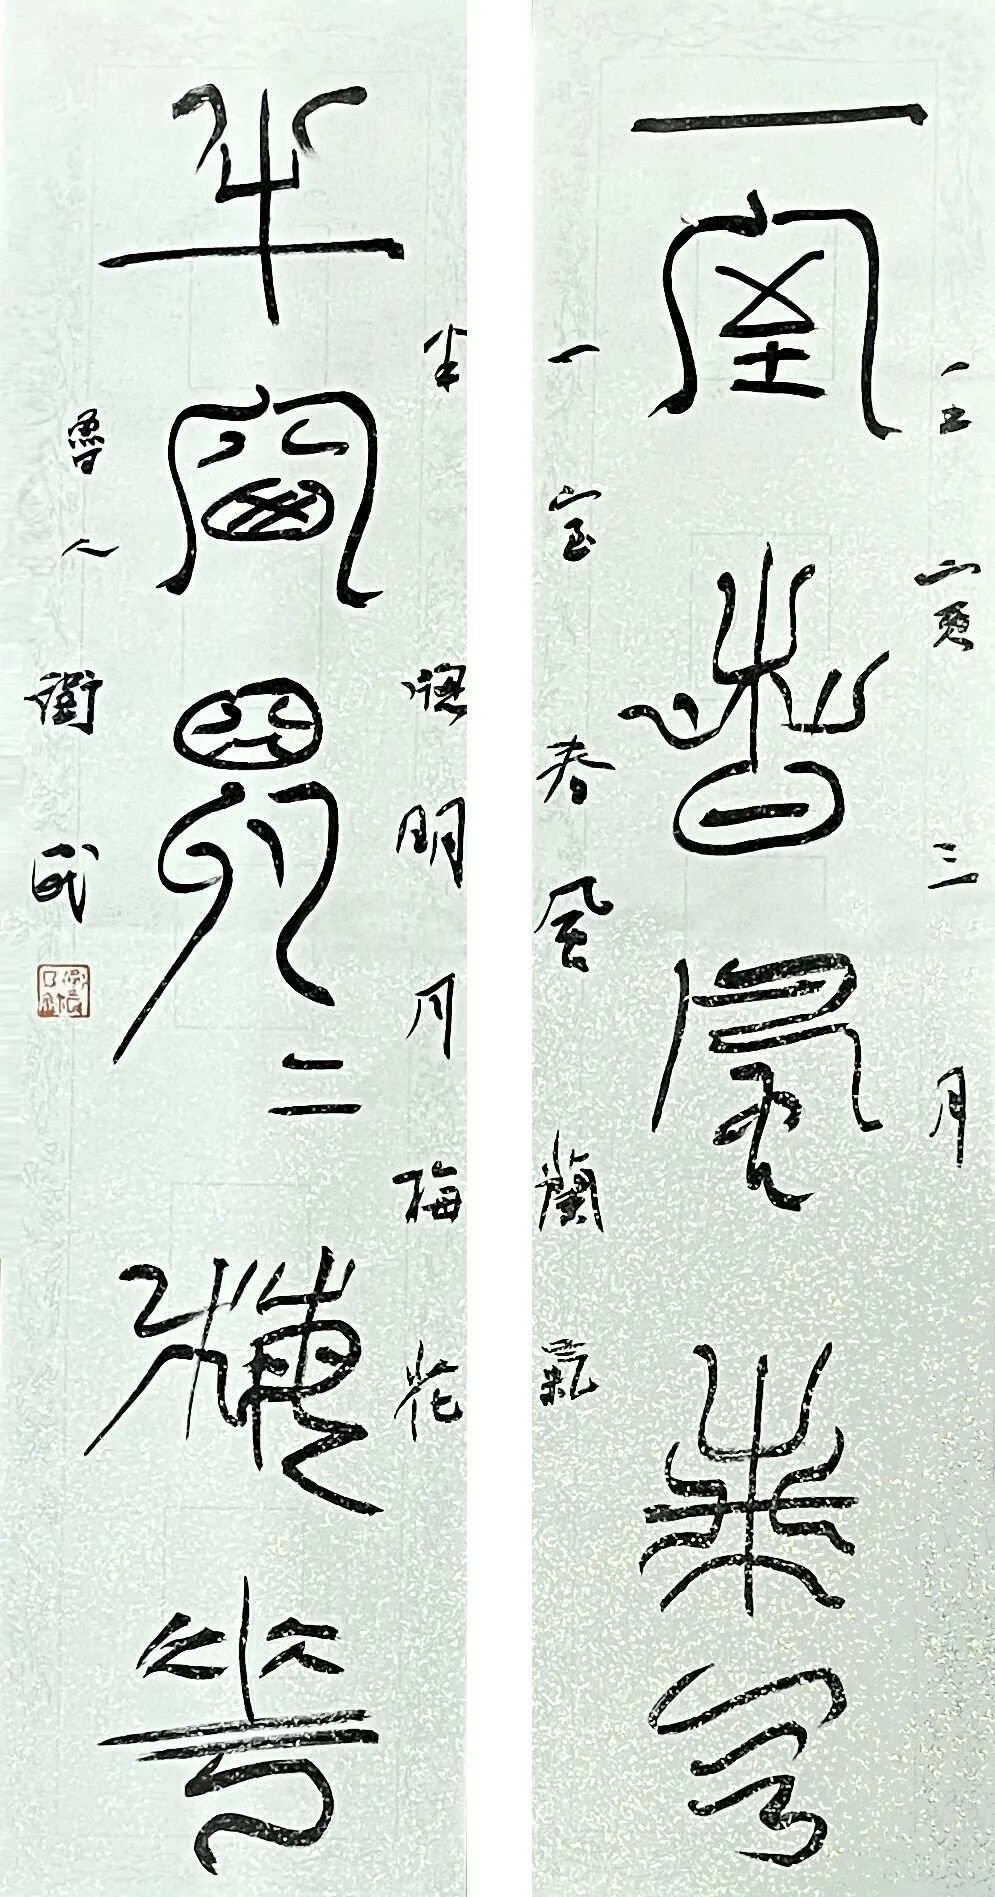 壬寅三月
一室春風蘭氣
一室春風蘭氣
半窗明月梅花
半窗明二梅花
魯人
衛